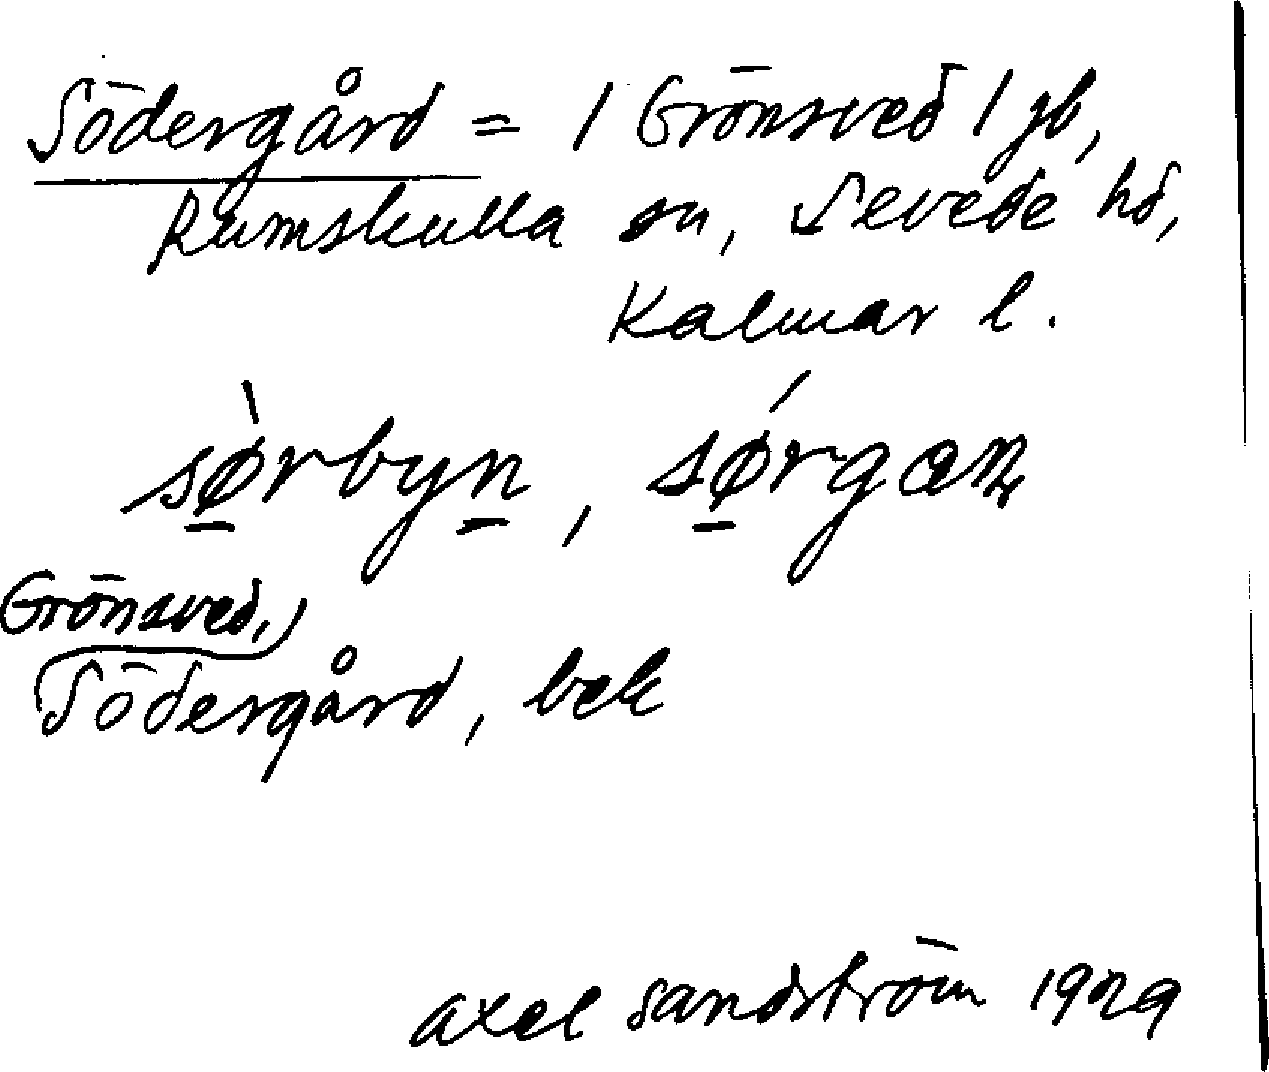 Södergård = 1 Grönsved 1 jb,
Rumskulla sn, Sevede hd,
Kalmar l.
sø̱̀rbyṉ, sǿ̱rgan
Grönsved,
Södergård, bek
Axel Sandström 1929